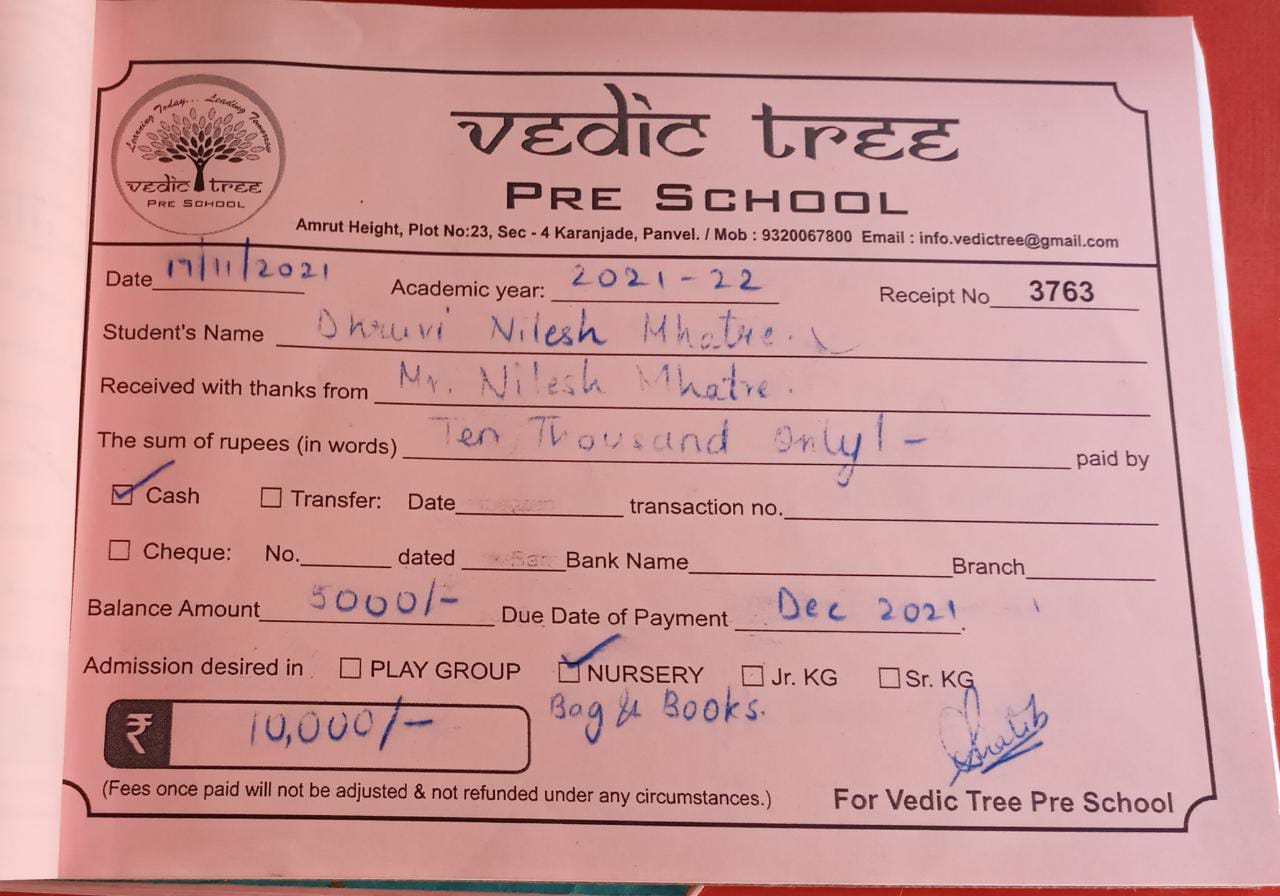 Learning Today... Leading Tomorrow
vedic tree
PRE SCHOOL
vedic tree
PRE SCHOOL
Amrut Height, Plot No:23, Sec - 4 Karanjade, Panvel. / Mob : 9320067800 Email : info.vedictree@gmail.com
Date 17/11/2021 Academic year: 2021-22 Receipt No 3763
Student's Name Dhruvi Nilesh Mhatre.
Received with thanks from Mr. Nilesh Mhatre.
The sum of rupees (in words) Ten Thousand Only/- paid by
Cash Transfer: Date transaction no.
Cheque: No. dated Bank Name Branch
Balance Amount 5000/- Due Date of Payment Dec 2021
Admission desired in PLAY GROUP NURSERY Jr. KG Sr. KG
₹ 10,000/- Bag & Books.
(Fees once paid will not be adjusted & not refunded under any circumstances.) For Vedic Tree Pre School